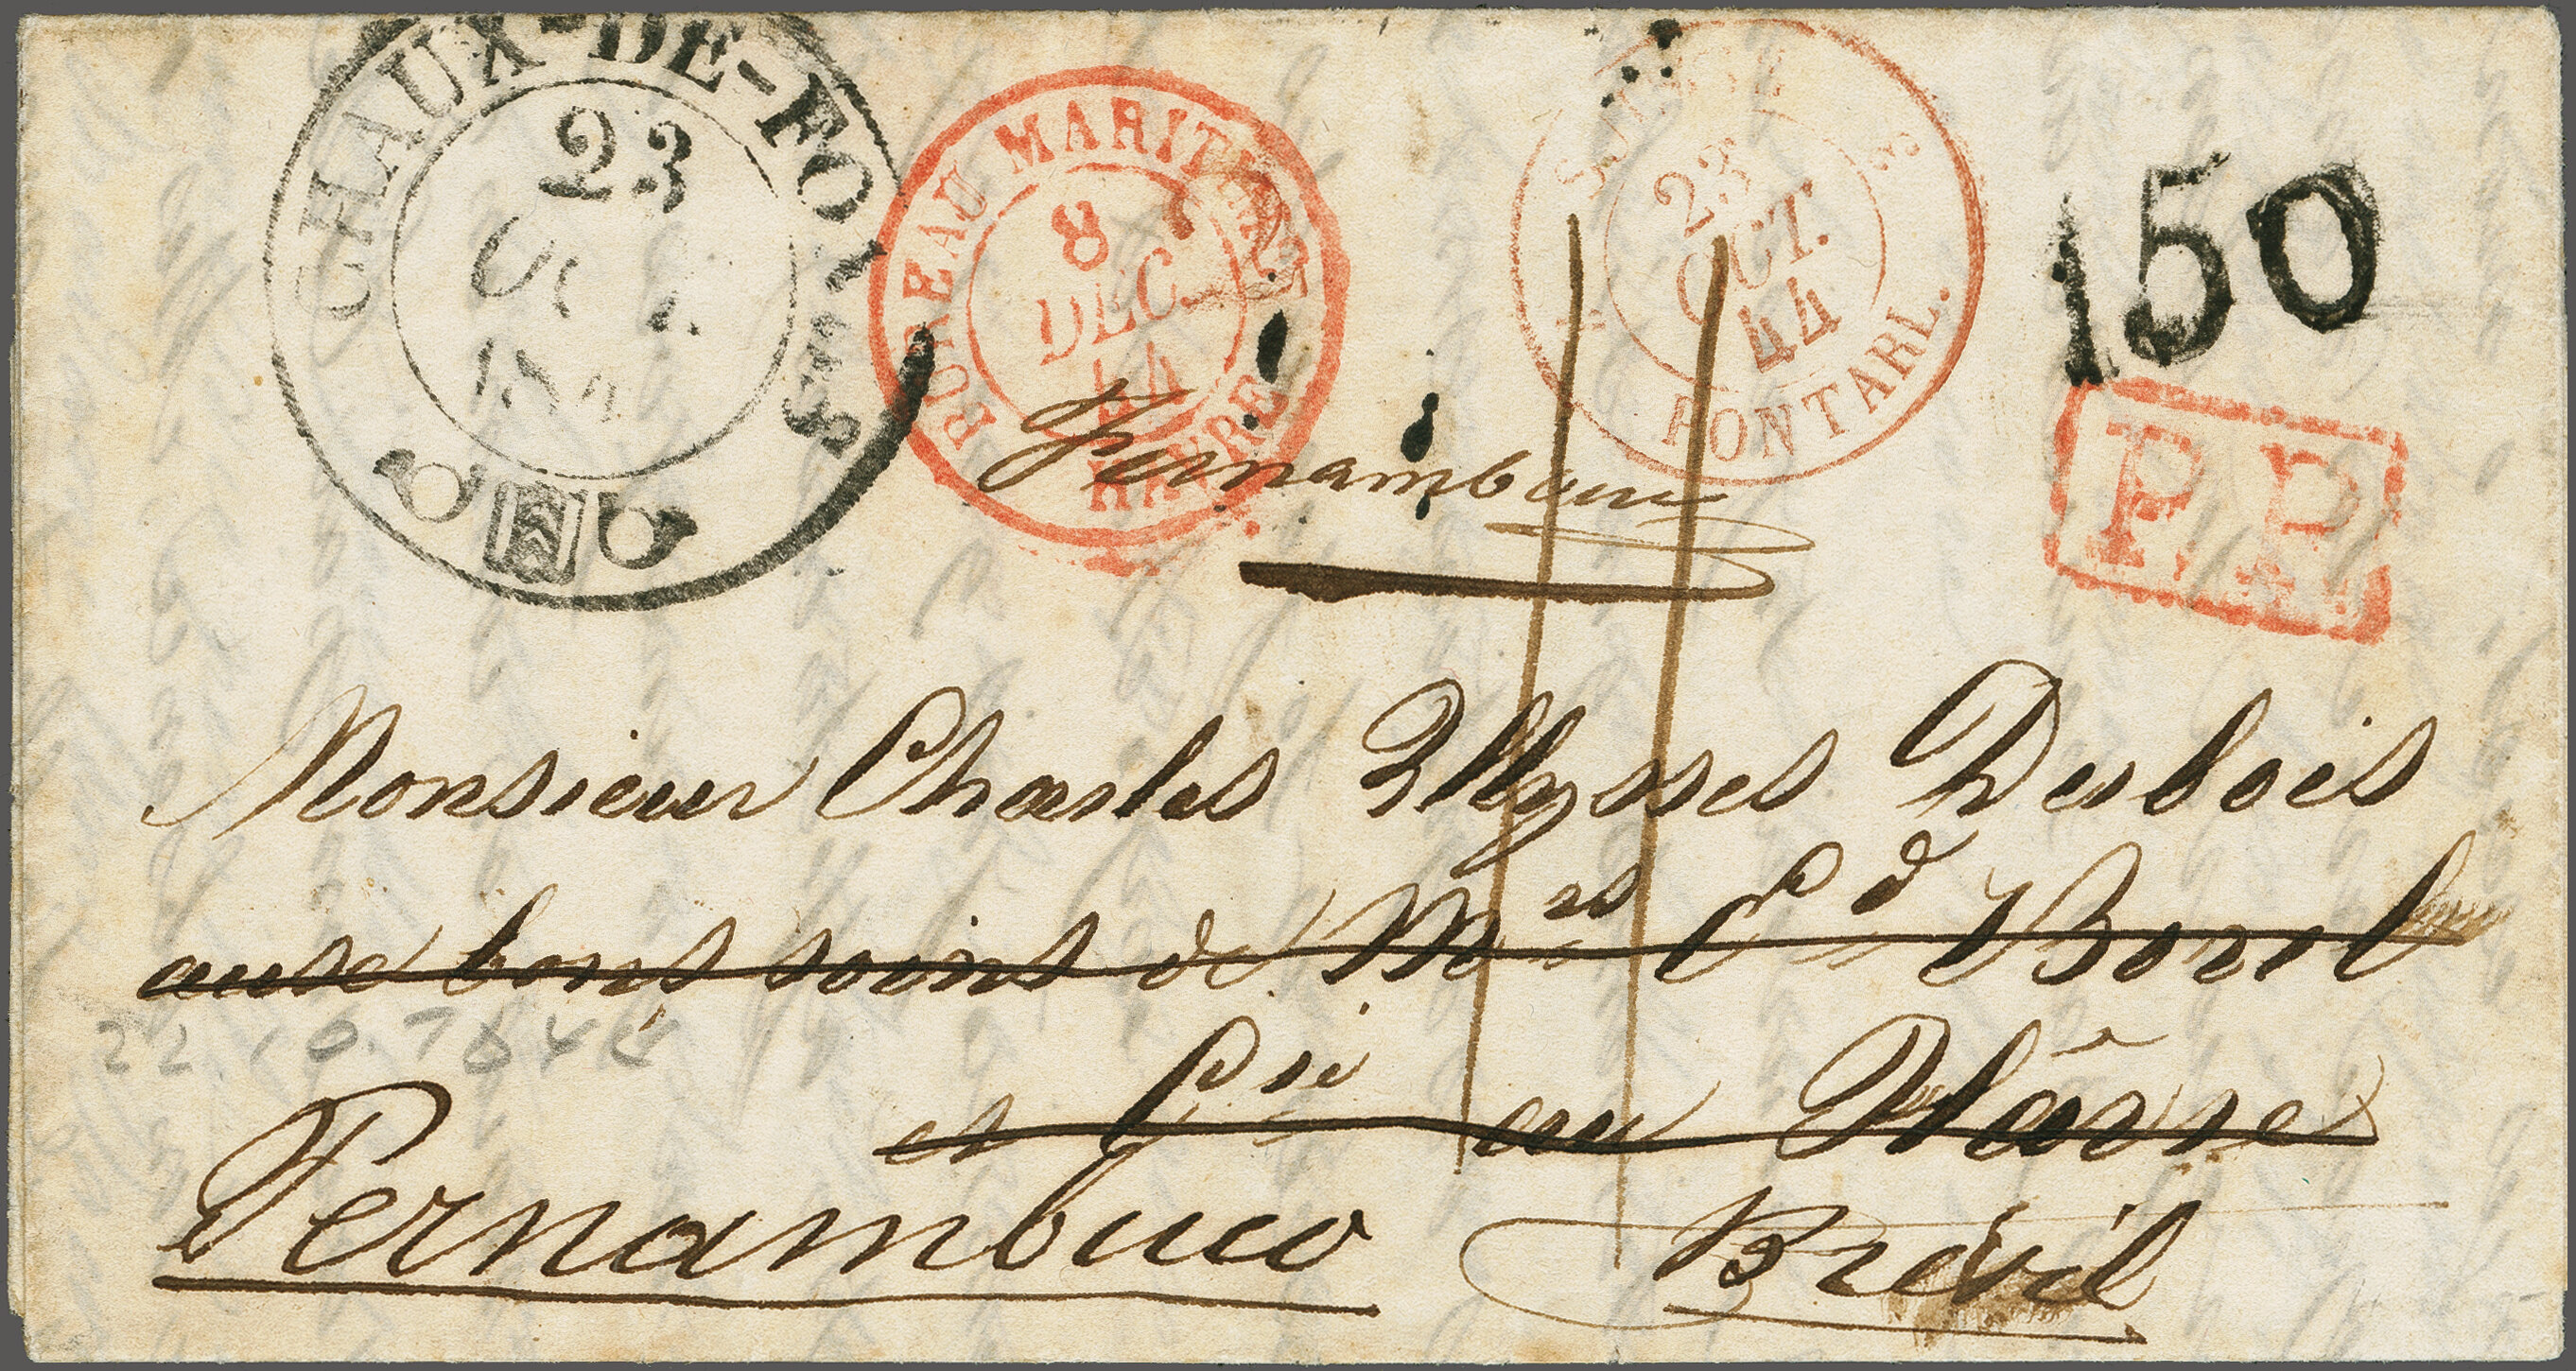 CHAUX-DE-FO
23
184
BUREAU MARITIME
8
DEC.
44
HAVRE
SUISSE
23
OCT.
44
PONTARL.
150
P.P.
Pernambuco
Monsieur Charles Ulysses Dubois
aux bons soins de Mrs Cd Borel
22.10.1844
et Cie au Hâvre
Pernambuco Brésil